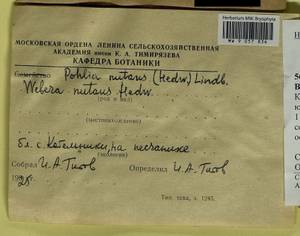 Herbarium MW, Bryophyta
MW 9 057 834
МОСКОВСКАЯ ОРДЕНА ЛЕНИНА СЕЛЬСКОХОЗЯЙСТВЕННАЯ
АКАДЕМИЯ им. К. А. ТИМИРЯЗЕВА
КАФЕДРА БОТАНИКИ
Семейство Pohlia nutans (Hedw) Lindb.
Webera nutans Hedw.
(род и вид)
(местонахождение)
бл. с. Котельники, на песчанике
(экология)
Собрал И.А Титов Определил И.А. Титов
Тип. тмха, з. 1285.